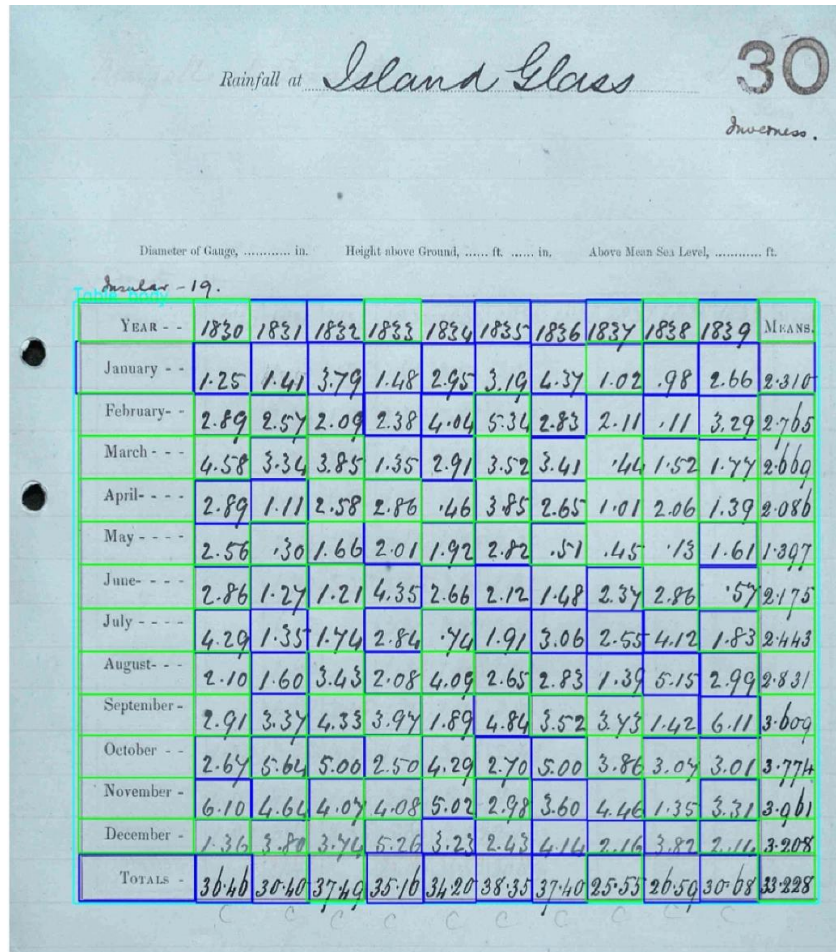 30
Rainfall at Island Glass
Inverness.
Diameter of Gauge, ............ in. Height above Ground, ...... ft. ...... in. Above Mean Sea Level, ............ ft.
Insular - 19.
Table body
YEAR - - 1830 1831 1832 1833 1834 1835 1836 1837 1838 1839 MEANS.
January - - 1.25 1.41 3.79 1.48 2.95 3.19 4.37 1.02 .98 2.66 2.310
February- - 2.89 2.57 2.09 2.38 4.04 5.34 2.83 2.11 .11 3.29 2.765
March - - - 4.58 3.34 3.85 1.35 2.91 3.52 3.41 .44 1.52 1.77 2.669
April- - - - 2.89 1.11 2.58 2.86 .46 3.85 2.65 1.01 2.06 1.39 2.086
May - - - - 2.56 .30 1.66 2.01 1.92 2.82 .51 .45 .13 1.61 1.397
June- - - - 2.86 1.27 1.21 4.35 2.66 2.12 1.48 2.37 2.86 .57 2.175
July - - - - 4.29 1.35 1.74 2.84 .74 1.91 3.06 2.55 4.12 1.83 2.443
August- - - 2.10 1.60 3.43 2.08 4.09 2.65 2.83 1.39 5.15 2.99 2.831
September - 2.91 3.37 4.33 3.97 1.89 4.84 3.52 3.73 1.42 6.11 3.609
October - - 2.67 5.64 5.00 2.50 4.29 2.70 5.00 3.86 3.07 3.01 3.774
November - 6.10 4.64 4.07 4.08 5.02 2.98 3.60 4.46 1.35 3.31 3.961
December - 1.36 3.80 3.74 5.26 3.23 2.43 4.14 2.16 3.82 2.14 3.208
TOTALS - 36.46 30.40 37.49 35.16 34.20 38.35 37.40 25.55 26.59 30.68 33.228
C C C C C C C C C C